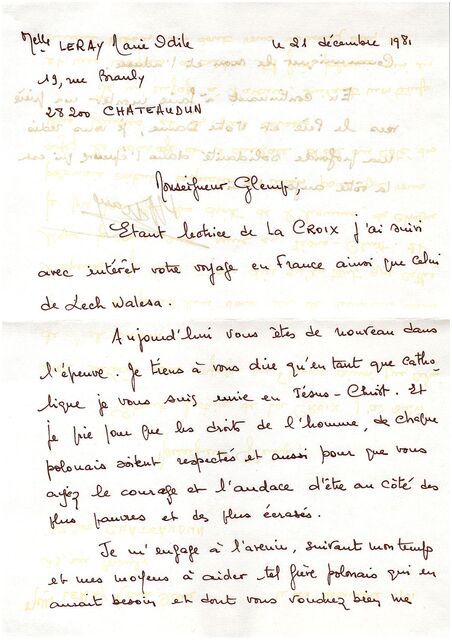 Melle LERAY Marie Odile le 21 décembre 1981
19, rue Brauly
28200 CHATEAUDUN
Monseigneur Glemp,
Etant lectrice de LA CROIX j'ai suivi
avec intérêt votre voyage en France ainsi que celui
de Lech Walesa.
Aujourd'hui vous êtes de nouveau dans
l'épreuve. Je tiens à vous dire qu'en tant que catho-
lique je vous suis unie en Jésus-Christ. Et
je prie pour que les droits de l'homme, de chaque
polonais soient respectés et aussi pour que vous
ayez le courage et l'audace d'être au côté des
plus pauvres et des plus écrasés.
Je m'engage à l'avenir, suivant mon temps
et mes moyens à aider tel frère polonais qui en
aurait besoin et dont vous voudrez bien me